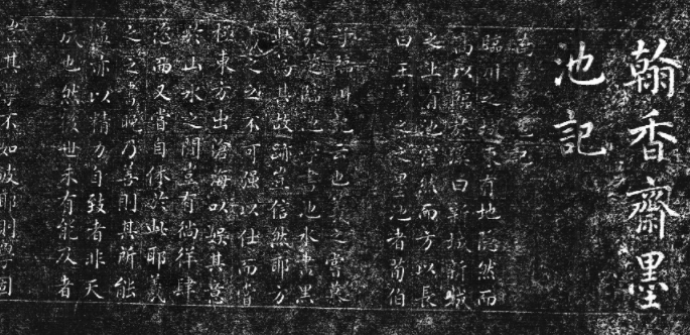 翰香齋墨
池記
墨池記
臨川之城東有地隱然而
高以臨於溪曰新城新城
之上有池窪然而方以長
曰王羲之之墨池者荀伯
子臨川記云也羲之嘗慕
張芝臨池學書池水盡黑
此為其故跡豈信然耶方
羲之之不可強以仕而嘗
極東方出滄海以娛其意
於山水之間豈有徜徉肆
恣而又嘗自休於此耶羲
之之書晚乃善則其所能
蓋亦以精力自致者非天
成也然後世未有能及者
豈其學不如彼耶則學固